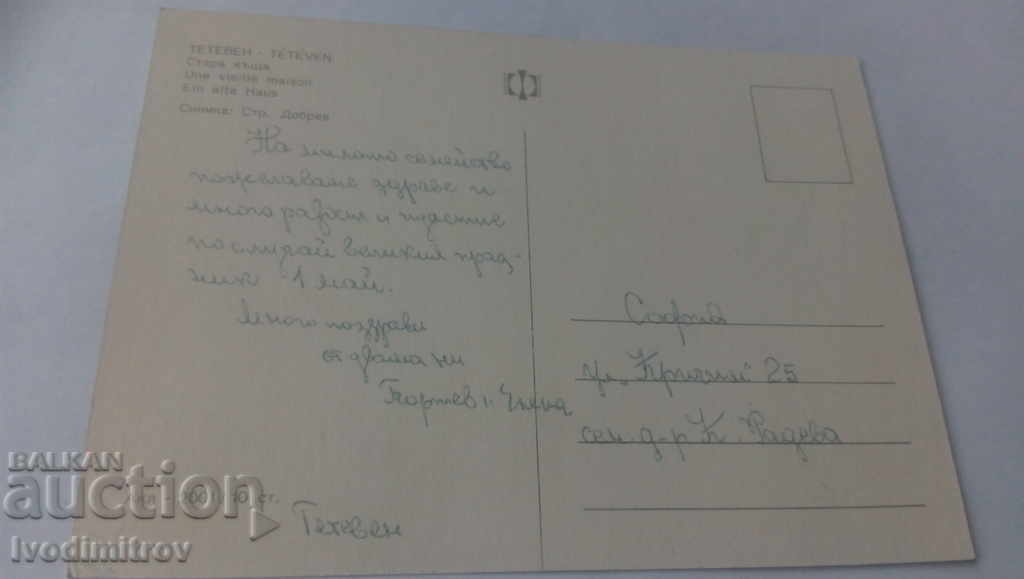 ТЕТЕВЕН - TETEVEN
Стара къща
Une vieille maison
Ein alte Haus
Снимка: Стр. Добрев
На милото семейство
пожелаваме здраве и
много радост и щастие
по случай великия праз-
ник - 1 май.
Много поздрави
от двама ни
Георгиев и
Тетевен
София
ул. "Кричим" 25
сем. д-р К. Радева
BALKAN
auction
Ivodimitrov